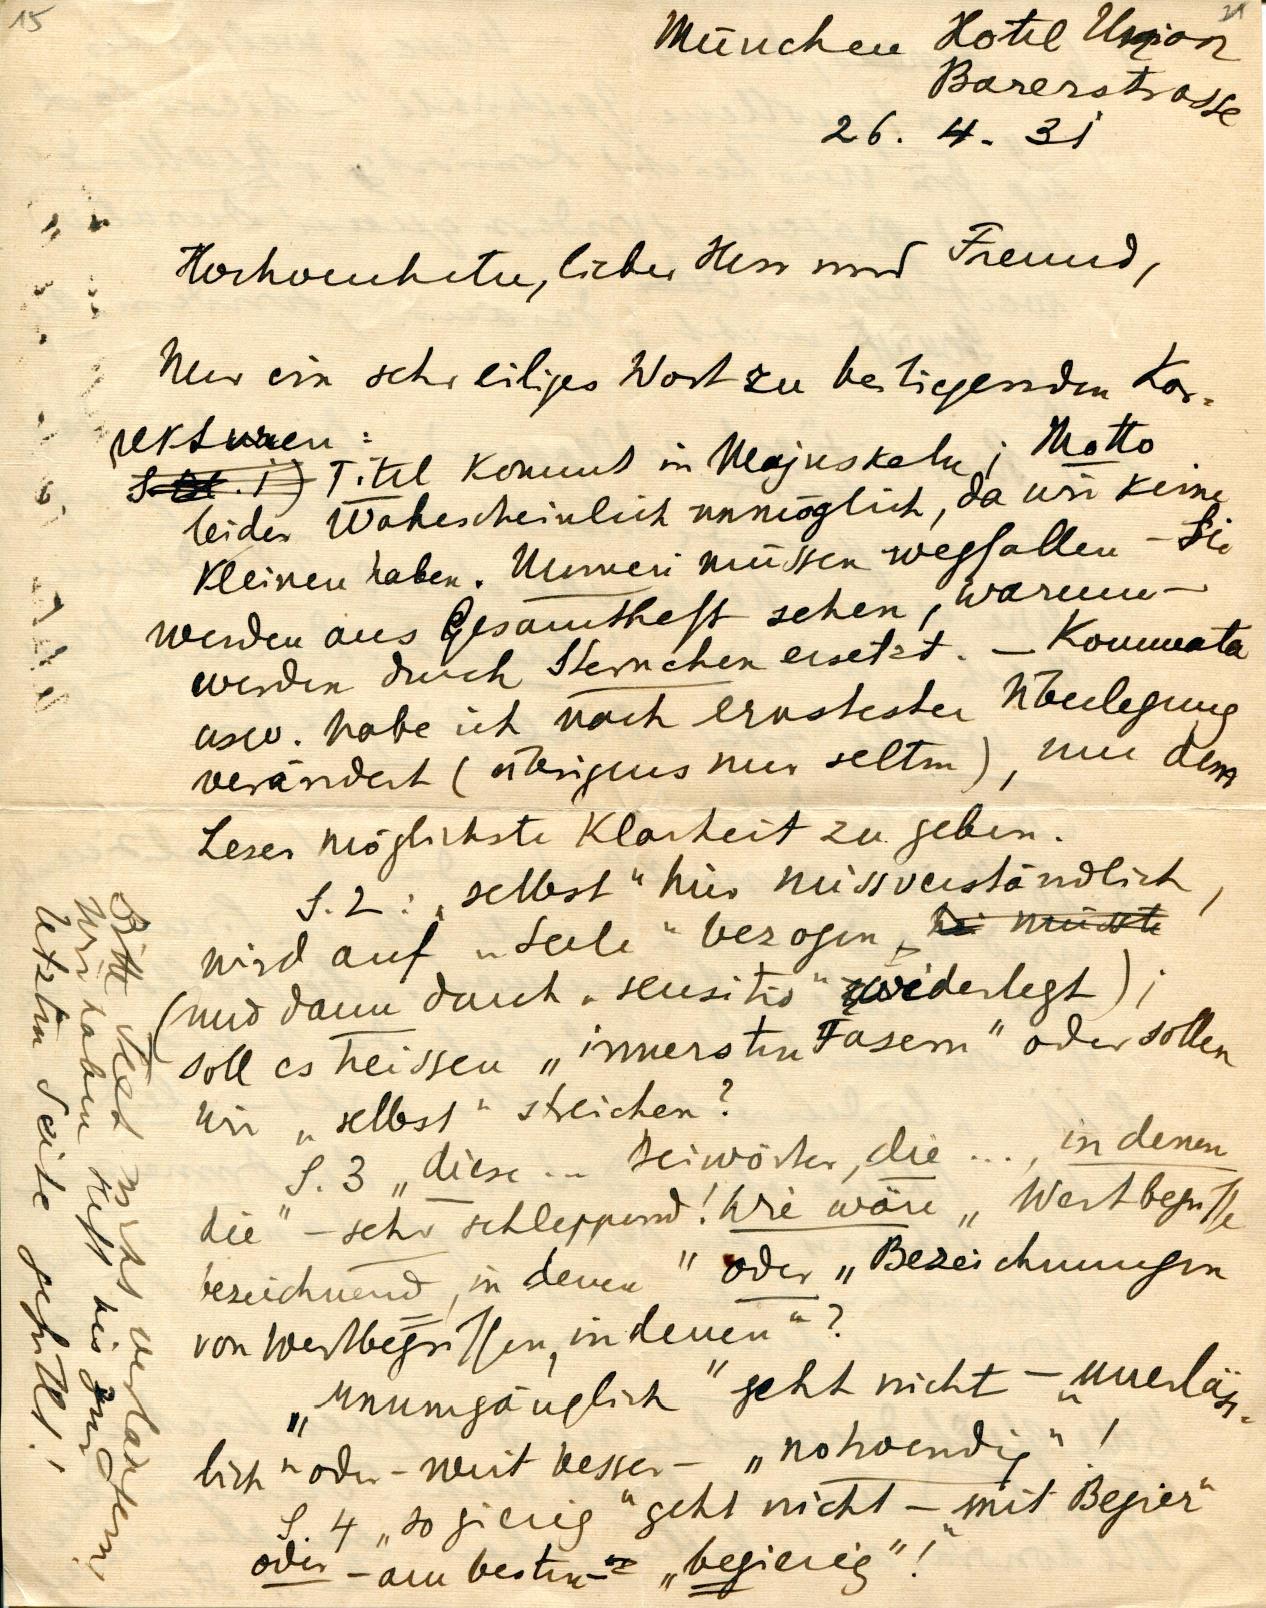 15
21
München Hotel Union
Barerstrasse
26. 4. 31
Hochverehrter, lieber Herr und Freund,
Nur ein sehr eiliges Wort zu beiliegenden Kor-
rekturen:
S. 1) Titel kommt in Majuskeln; Motto
leider wahrscheinlich unmöglich, da wir keine
kleinen haben. Numeri müssen wegfallen – Sie
werden aus Gesamtheft sehen, warum –
werden durch Sternchen ersetzt. – Kommata
usw. habe ich nach ernstester Überlegung
verändert (übrigens nur selten), um dem
Leser möglichste Klarheit zu geben.
S. 2: „selbst“ hier missverständlich,
wird auf „Seele“ bezogen, müsste
(und dann durch „sensitiv“ widerlegt);
soll es heissen „innersten Fasern“ oder sollen
wir „selbst“ streichen?
S. 3 „diese ... Beiwörter, die ..., in denen
die“ – sehr schleppend! Wie wäre „Wertbegriffe
bezeichnend, in denen“ oder „Bezeichnungen
von Wertbegriffen, in denen“?
„Unumgänglich“ geht nicht – „unerläss-
lich“ oder – weit besser – „notwendig“!
S. 4 „so gierig“ geht nicht – „mit Begier“
oder – am besten – „begierig“!
Bitte nicht verlängern!
Wir haben Heft bis zur
letzten Seite gefüllt!